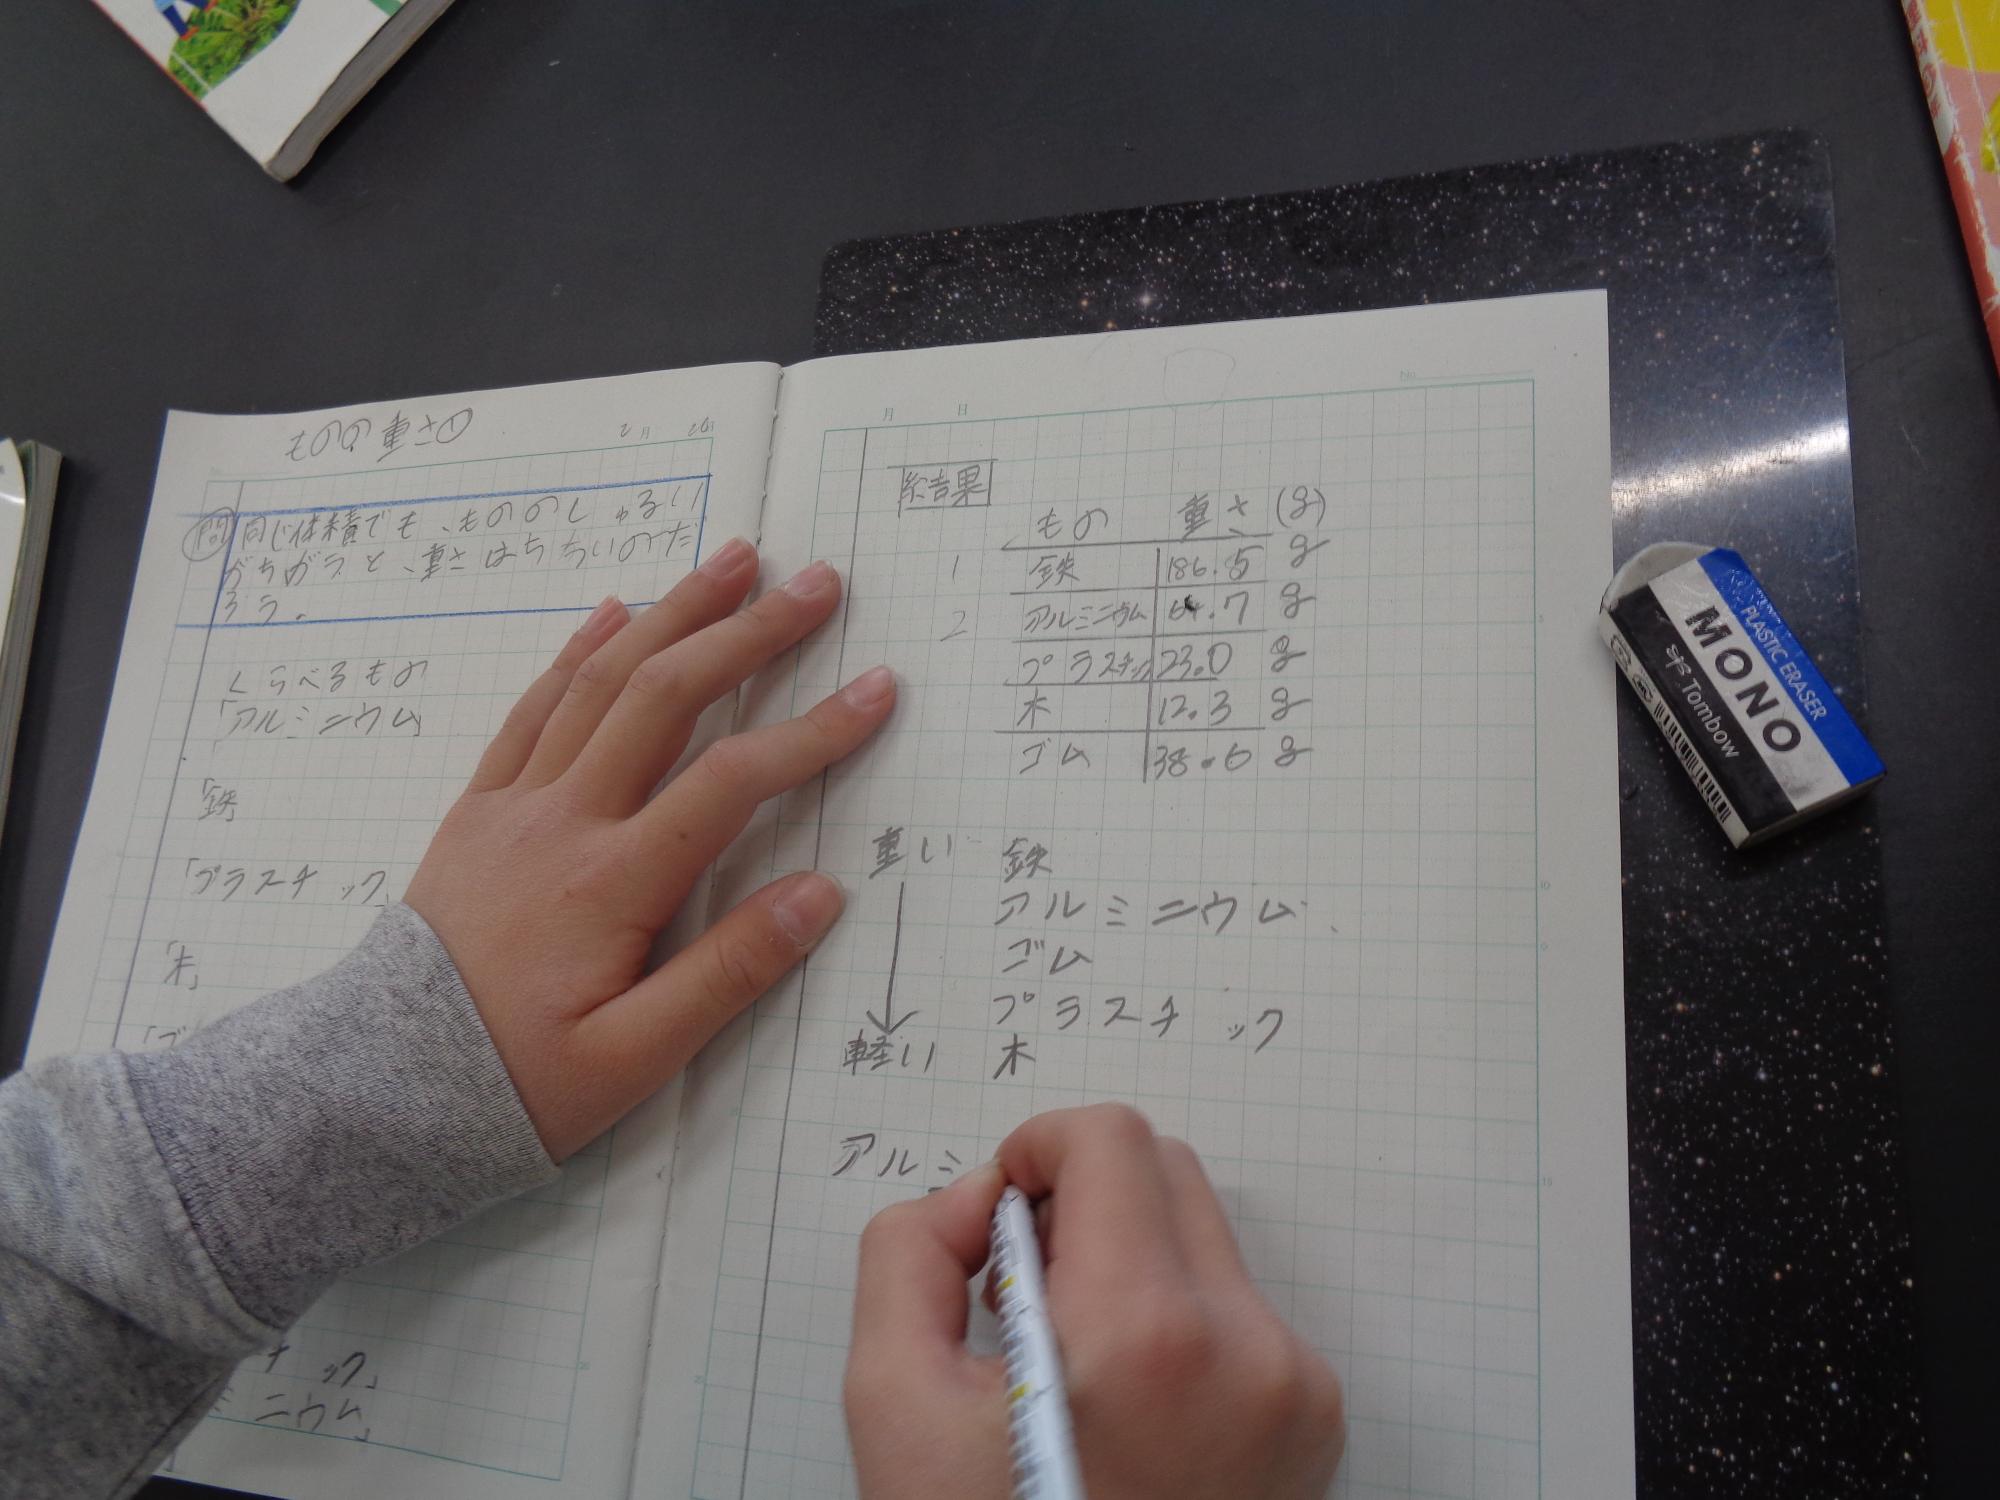 ものの重さ①
2月 26日
問 同じ体積でも、もののしゅるい
がちがうと、重さはちちいのだ
ろう。
くらべるもの
「アルミニウム」
「鉄
「プラスチック」
「木」
「ゴ
チック」
ミニウム」
月 日
No.
結果
もの 重さ (g)
1 鉄 186.5 g
2 アルミニウム 64.7 g
プラスチック 23.0 g
木 12.3 g
ゴム 38.6 g
重い 鉄
アルミニウム
ゴム
プラスチック
軽い 木
アルミ
PLASTIC ERASER
MONO
Tombow